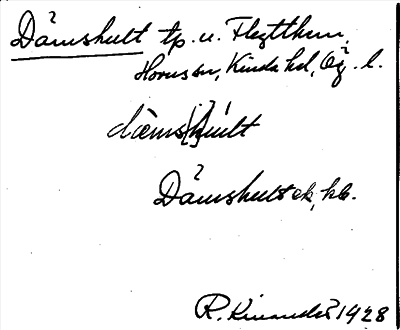 Dämshult tp. u. Flytthem,
Horns sn, Kinda hd, Ög. l.
dä̀ms(h)ùlt
Dämshult ek, kb.
R. Kinander 1928